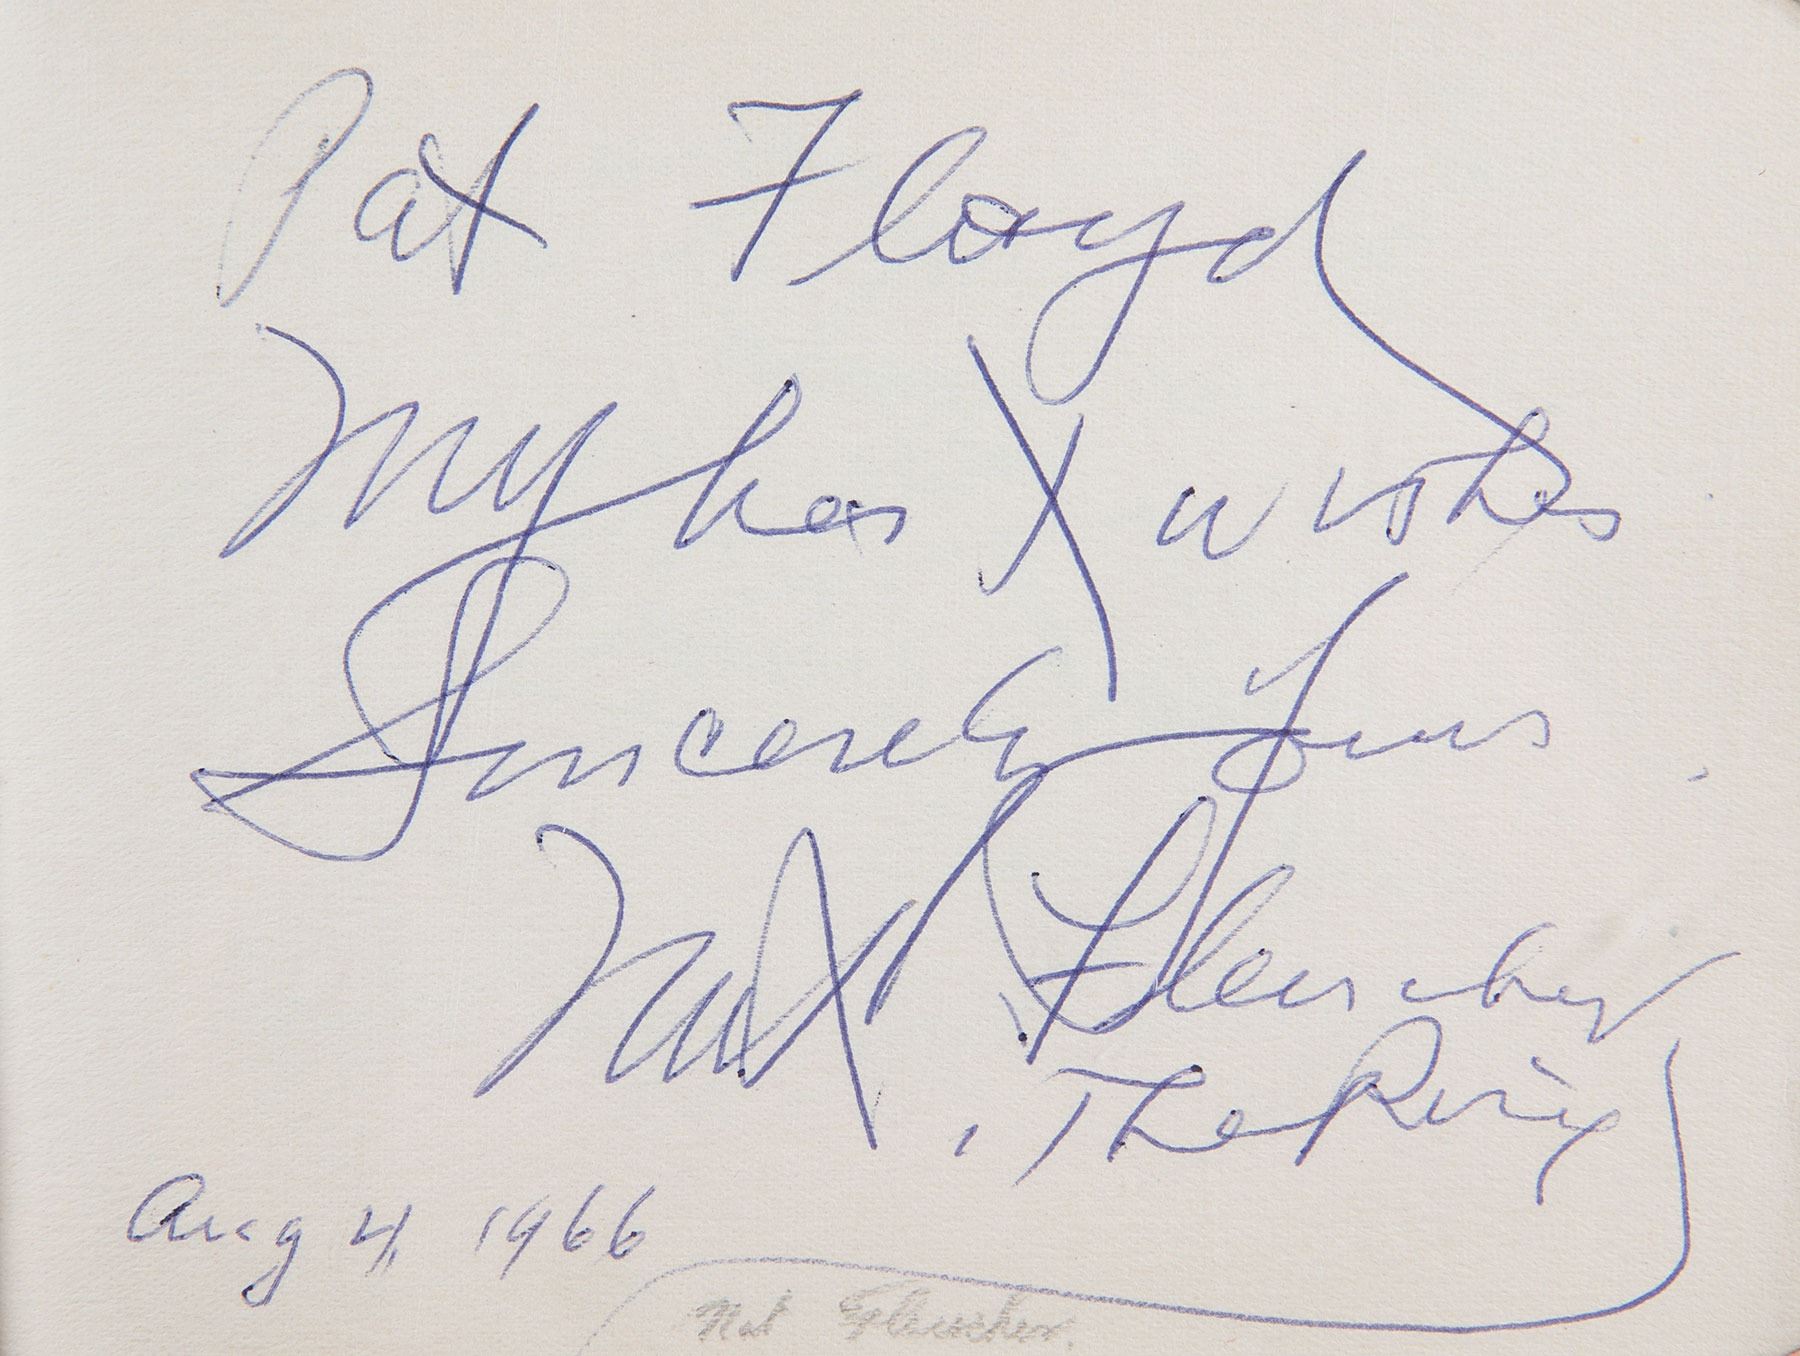 Pat Floyd
My best wishes
Sincerely Yours
Nat Fleischer
The Ring
Aug 4, 1966
Nat Fleischer.